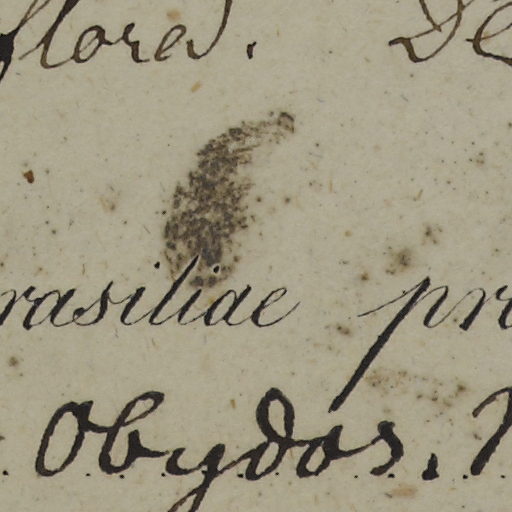 flored. De
rasiliae pr
Obydos.